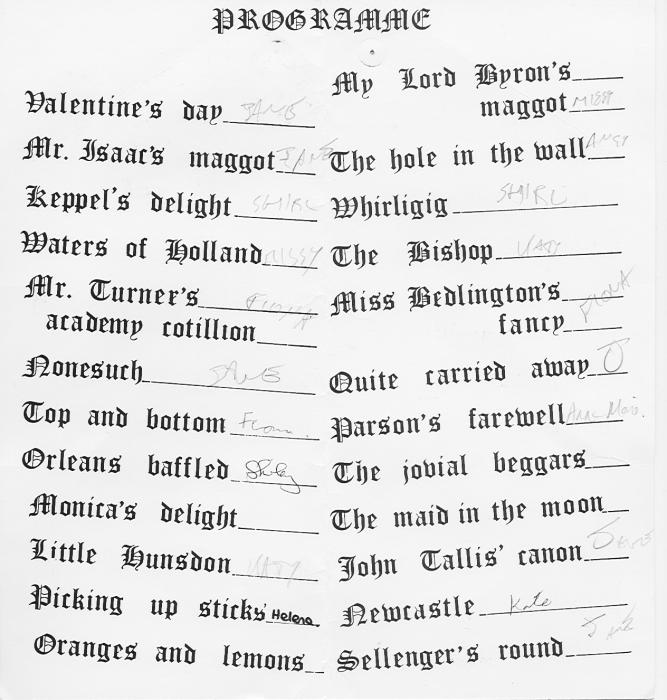 PROGRAMME
Valentine's day JANE
Mr. Isaac's maggot JANE
Keppel's delight SHIRL
Waters of Holland MISSY
Mr. Turner's
academy cotillion
Nonesuch JANE
Top and bottom
Orleans baffled
Monica's delight
Little Hunsdon KATY
Picking up sticks Helena
Oranges and lemons
My Lord Byron's
maggot MISSY
The hole in the wall
Whirligig SHIRL
The Bishop KATY
Miss Bedlington's
fancy FIONA
Quite carried away J
Parson's farewell
The jovial beggars
The maid in the moon
John Tallis' canon Jane
Newcastle Kate
Sellenger's round Jane